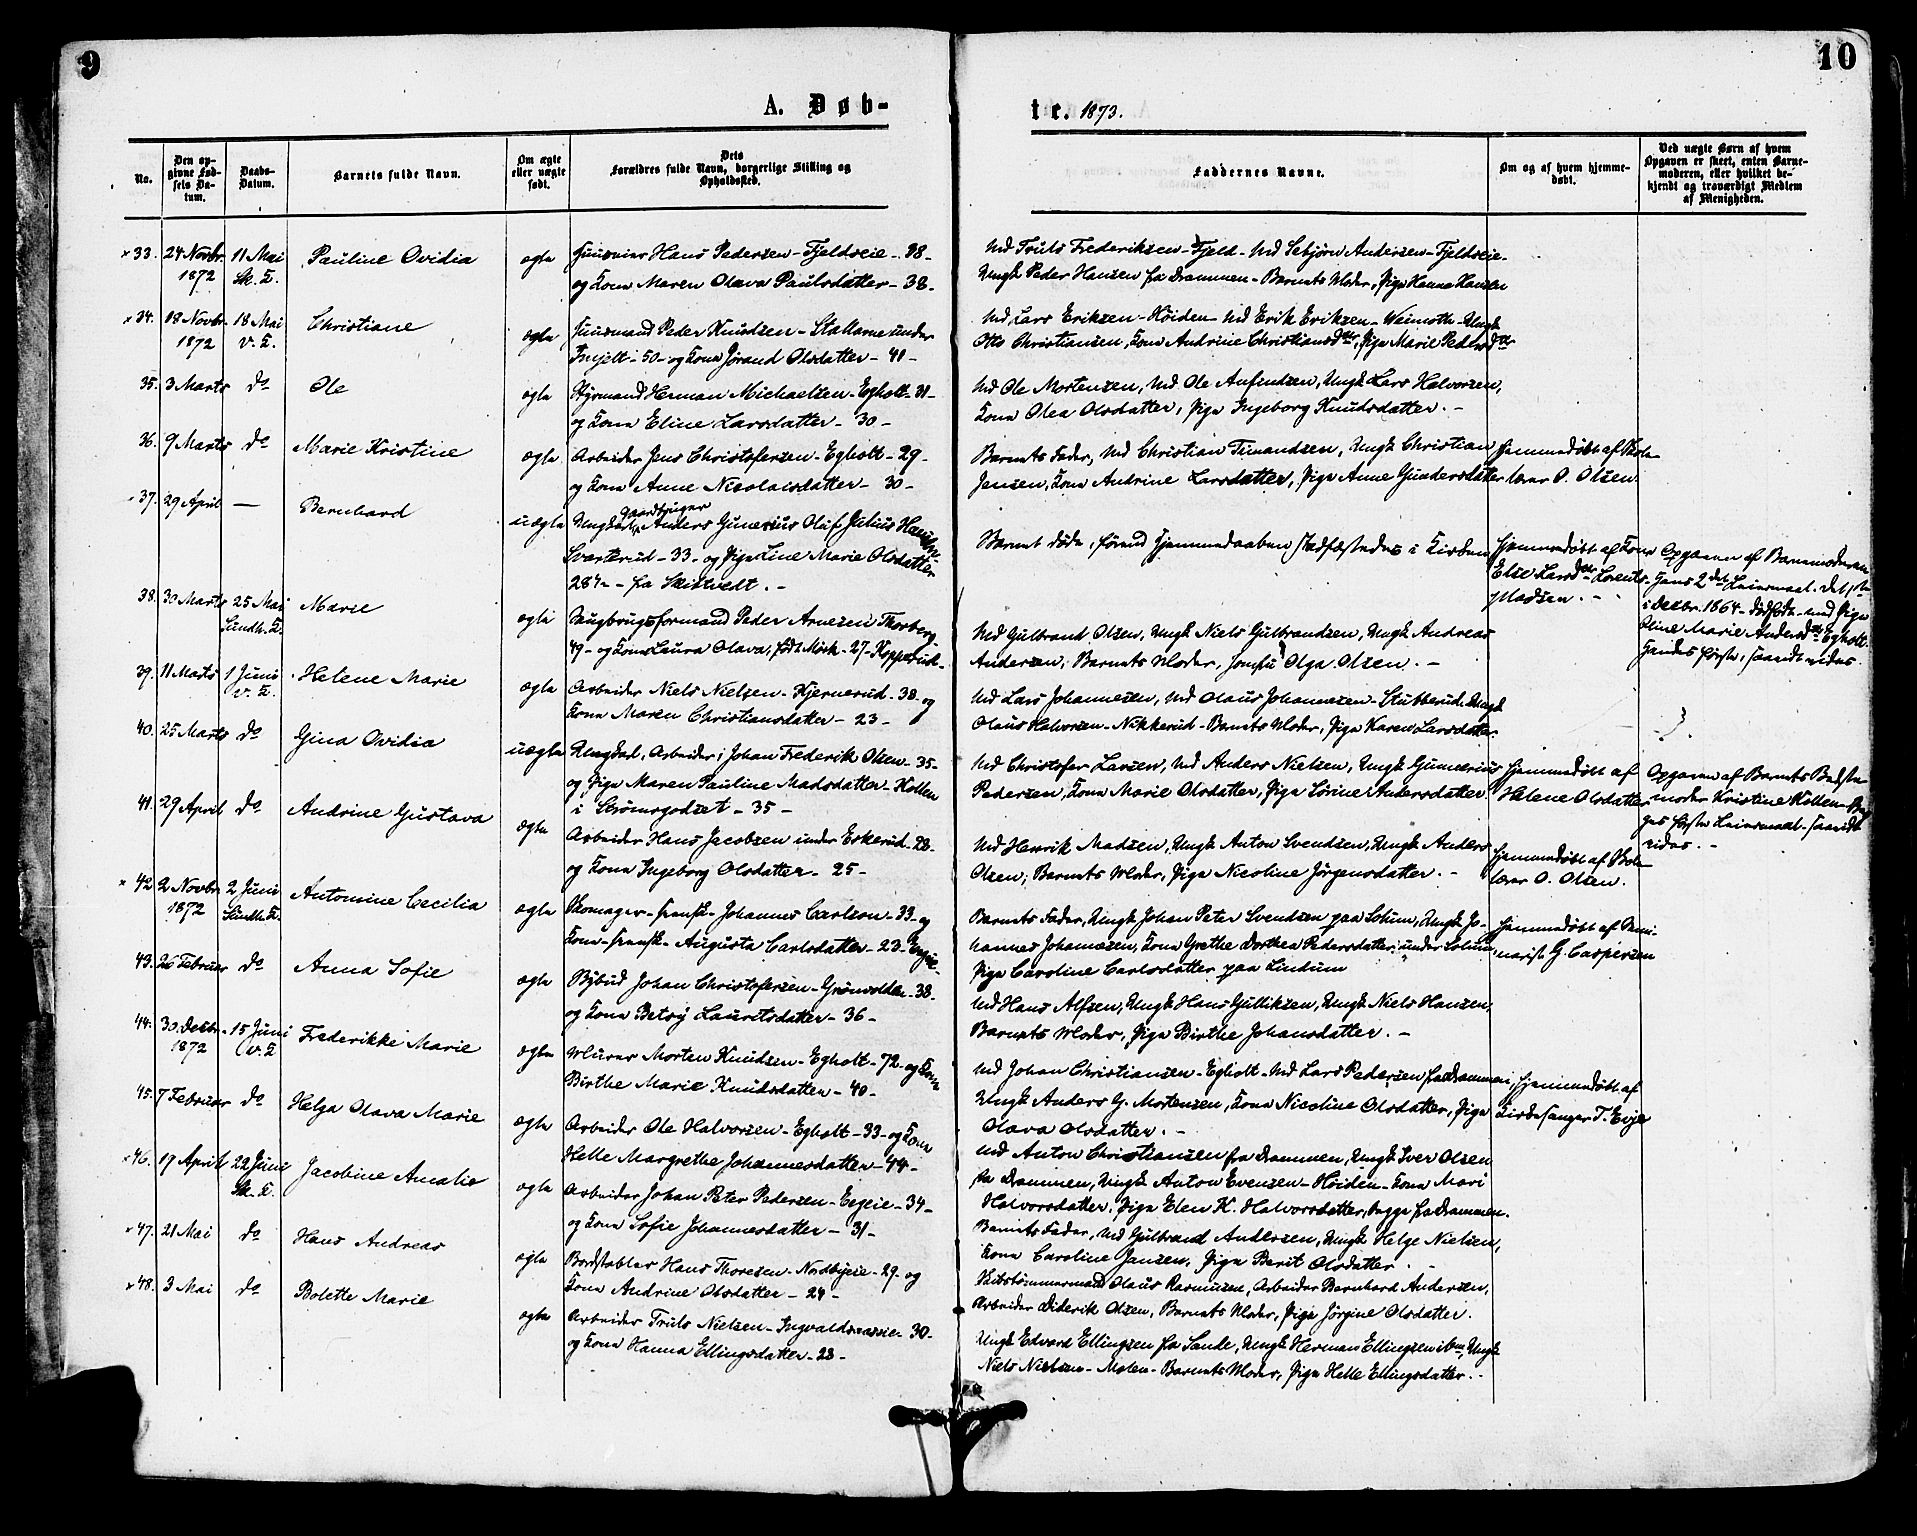 9
10
A. Døb-
te. 1873.
No.
Den op-
givne Fød-
sels Da-
tum.
Daabs-
Datum.
Barnets fulde Navn.
Om ægte
eller uægte
født.
Dets
Forældres fulde Navn, borgerlige Stilling og
Opholdssted.
Faddernes Navne.
Om og af hvem hjemme-
døbt.
Ved uægte Børn af hvem
Opgaven er skeet, enten Barne-
moderen, eller hvilket be-
kjendt og troværdigt Medlem
af Menigheden.
33. 24 Novbr. 11 Mai Pauline Ovidia ægte Huuseier Hans Pedersen - Fjeldseie - 38 -
1872 Sk. K. og Kone Maren Olava Paulsdatter - 38 -
Ud Truls Frederiksen - Fjeld - Ud Sebjørn Andersen - Fjeldseie -
Ungk Peder Hansen fra Drammen - Barnets Moder, Pige Hanna Hansen
34. 18 Novbr. 18 Mai Christiane ægte Huusmand Peder Knudsen - under
1872 v. K. - 50 - og Kone Jorand Olsdatter - 41 -
Ud Lars Eriksen - Høiden - Ud Erik Eriksen - Ungk
Otto Christiansen, Kone Andrine Christiansdtr, Pige Marie Pedersdtr
35. 3 Marts do Ole ægte Styrmand Herman Michaelsen - Egholt - 31 -
og Kone Eline Larsdatter - 30 -
Ud Ole Mortensen, Ud Ole Anfindsen, Ungk Lars Halvorsen,
Kone Olea Olsdatter, Pige Ingeborg Knudsdatter. -
36. 9 Marts do Marie Kristine ægte Arbeider Jens Christofersen - Egholt - 29 -
og Kone Anne Nicolaisdatter - 30 -
Barnets Fader, Ud Christian Timandsen, Ungk Christian
Jensen, Kone Andrine Larsdatter, Pige Anne Gundersdatter
Hjemmedøbt af Skole-
lærer O. Olsen.
37. 29 April — Bernhard uægte Ungkarl, gaardbruger Anders Gunerius Oluf Julius Hansen
Svarterud - 33 - og Pige Line Marie Olsdatter
28 ½ - fra Skistvedt. -
Barnet døde, førend Hjemmedaaben stadfæstedes i Kirken
Hjemmedøbt af Kone
Else Larsdtr Lorents
Madsen. -
Opgaven af Barnemoderen
Hans 2det Leiermaal. Det 1ste
i Decbr. 1864 - dødfødt - med Pige
Oline Marie Andersdtr Egholt.
Hendes første, saavidt vides.
38. 30 Marts 25 Mai Marie ægte Saugbrugsformand Peder Arnesen Thorberg
Sundh. K. 49 - og Kone Laura Olava, født Mørk - 27 - Kopperud -
Ud Gulbrand Olsen, Ungk Niels Gulbrandsen, Ungk Andreas
Andersen, Barnets Moder, Jomfru Olga Olsen. -
39. 11 Marts 1 Juni Helene Marie ægte Arbeider Niels Nielsen - Kjernerud - 38 - og
v. K. Kone Maren Christiansdatter - 23 -
Ud Lars Johannesen, Ud Olaus Johannesen - Stubberud, Ungk
Olaus Halvorsen - Nikkerud - Barnets Moder, Pige Karen Larsdatter
40. 25 Marts do Gina Ovidia uægte Ungkarl, Arbeider, Johan Frederik Olsen - 35 -
og Pige Maren Pauline Madsdatter - Kollen
i Strømsgodset - 35 -
Ud Christofer Larsen, Ud Anders Nielsen, Ungk Gunerius
Pedersen, Kone Marie Olsdatter, Pige Lorine Andersdatter.
Hjemmedøbt af
Helene Olsdatter
Opgaven af Barnets Bedste-
moder Kristine Kollen - Be-
ges første Leiermaal - saavidt
vides. -
41. 29 April do Andrine Gustava ægte Arbeider Hans Jacobsen under Eskerud - 28 -
og Kone Ingeborg Olsdatter - 25 -
Ud Henrik Madsen, Ungk Anton Svendsen, Ungk Anders
Olsen, Barnets Moder, Pige Nicoline Jørgensdatter. -
Hjemmedøbt af Skole-
lærer O. Olsen.
42. 2 Novbr. 2 Juni Antomine Cecilia ægte Skomager - svensk - Johannes Carlson - 33 - og
1872 Sundh. K. Kone - svensk - Augusta Carlsdatter - 23 -
Barnets Fader, Ungk Johan Peter Svendsen paa Solum, Ungk Jo-
hannes Johannesen, Kone Grethe Dorthea Pedersdatter under Solum,
Pige Caroline Carlsdatter paa Lindum
Hjemmedøbt af Semi-
narist G. Caspersen
43. 26 Februar do Anna Sofie ægte Bybud Johan Christofersen - Grønvolden - 38 -
og Kone Betsy Lauritsdatter - 36 -
Ud Hans Alfsen, Ungk Hans Gulliksen, Ungk Niels Hansen,
Barnets Moder, Pige Birthe Johansdatter. -
44. 30 Decbr. 15 Juni Frederikke Marie ægte Murer Morten Knudsen - Egholt - 72 - og Kone
1872 v. K. Birthe Marie Knudsdatter - 40 -
Ud Johan Christiansen - Egholt - Ud Lars Pedersen fra Drammen,
Ungk Anders G. Mortensen, Kone Nicoline Olsdatter, Pige
Olava Olsdatter. -
Hjemmedøbt af
Kirkesanger T. Evje
45. 7 Februar do Helga Olava Marie ægte Arbeider Ole Halvorsen - Egholt - 33 - og Kone
Helle Margrethe Johannesdatter - 44 -
Ud Anton Christiansen fra Drammen, Ungk Iver Olsen
fra Drammen, Ungk Anton Evensen - Høiden - Kone Mari
Halvorsdatter, Pige Elen K. Halvorsdatter, begge fra Drammen.
46. 19 April 22 Juni Jacobine Amalie ægte Arbeider Johan Peter Pedersen - Egeeie - 34 -
Sk. K. og Kone Sofie Johannesdatter - 31 -
Barnets Fader, Ud Gulbrand Andersen, Ungk Helge Nielsen,
Kone Caroline Jansen, Pige Berit Olsdatter.
47. 21 Mai do Hans Andreas ægte Bordstabler Hans Thoresen - Nordbyeie - 29 - og
Kone Andrine Olsdatter - 24 -
Skibstømmermand Olaus Rasmusen, Arbeider Bernhard Andersen,
Arbeider Diderik Olsen, Barnets Moder, Pige Jørgine Olsdatter.
48. 3 Mai do Bolette Marie ægte Arbeider Truls Nielsen - Ingvaldsaaseie - 30 -
og Kone Hanna Ellingsdatter - 28 -
Ungk Edvard Ellingsen fra Sande, Ungk Herman Ellingsen ibm, Ungk
Niels Nielsen - Molen - Barnets Moder, Pige Helle Ellingsdatter. -